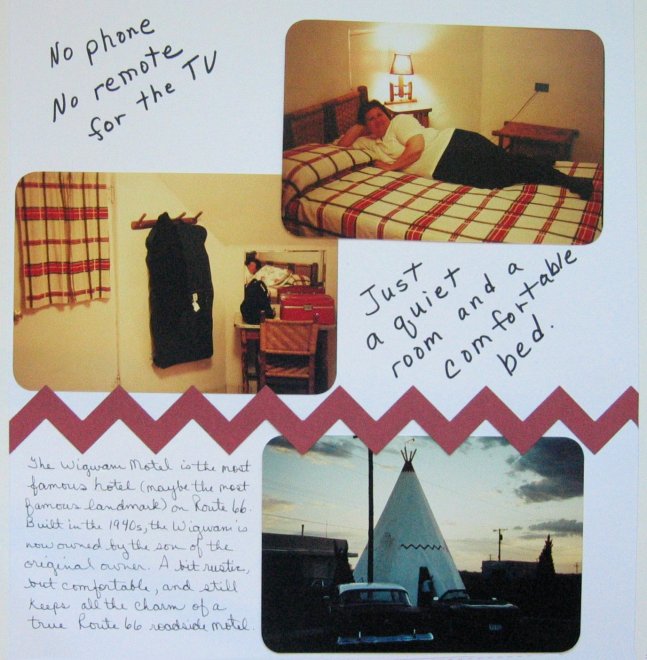 No phone
No remote
for the TV
Just
a quiet
room and a
comfortable
bed.
The Wigwam Motel is the most
famous hotel (maybe the most
famous landmark) on Route 66.
Built in the 1940s, the Wigwam is
now owned by the son of the
original owner. A bit rustic,
but comfortable, and still
keeps all the charm of a
true Route 66 roadside motel.